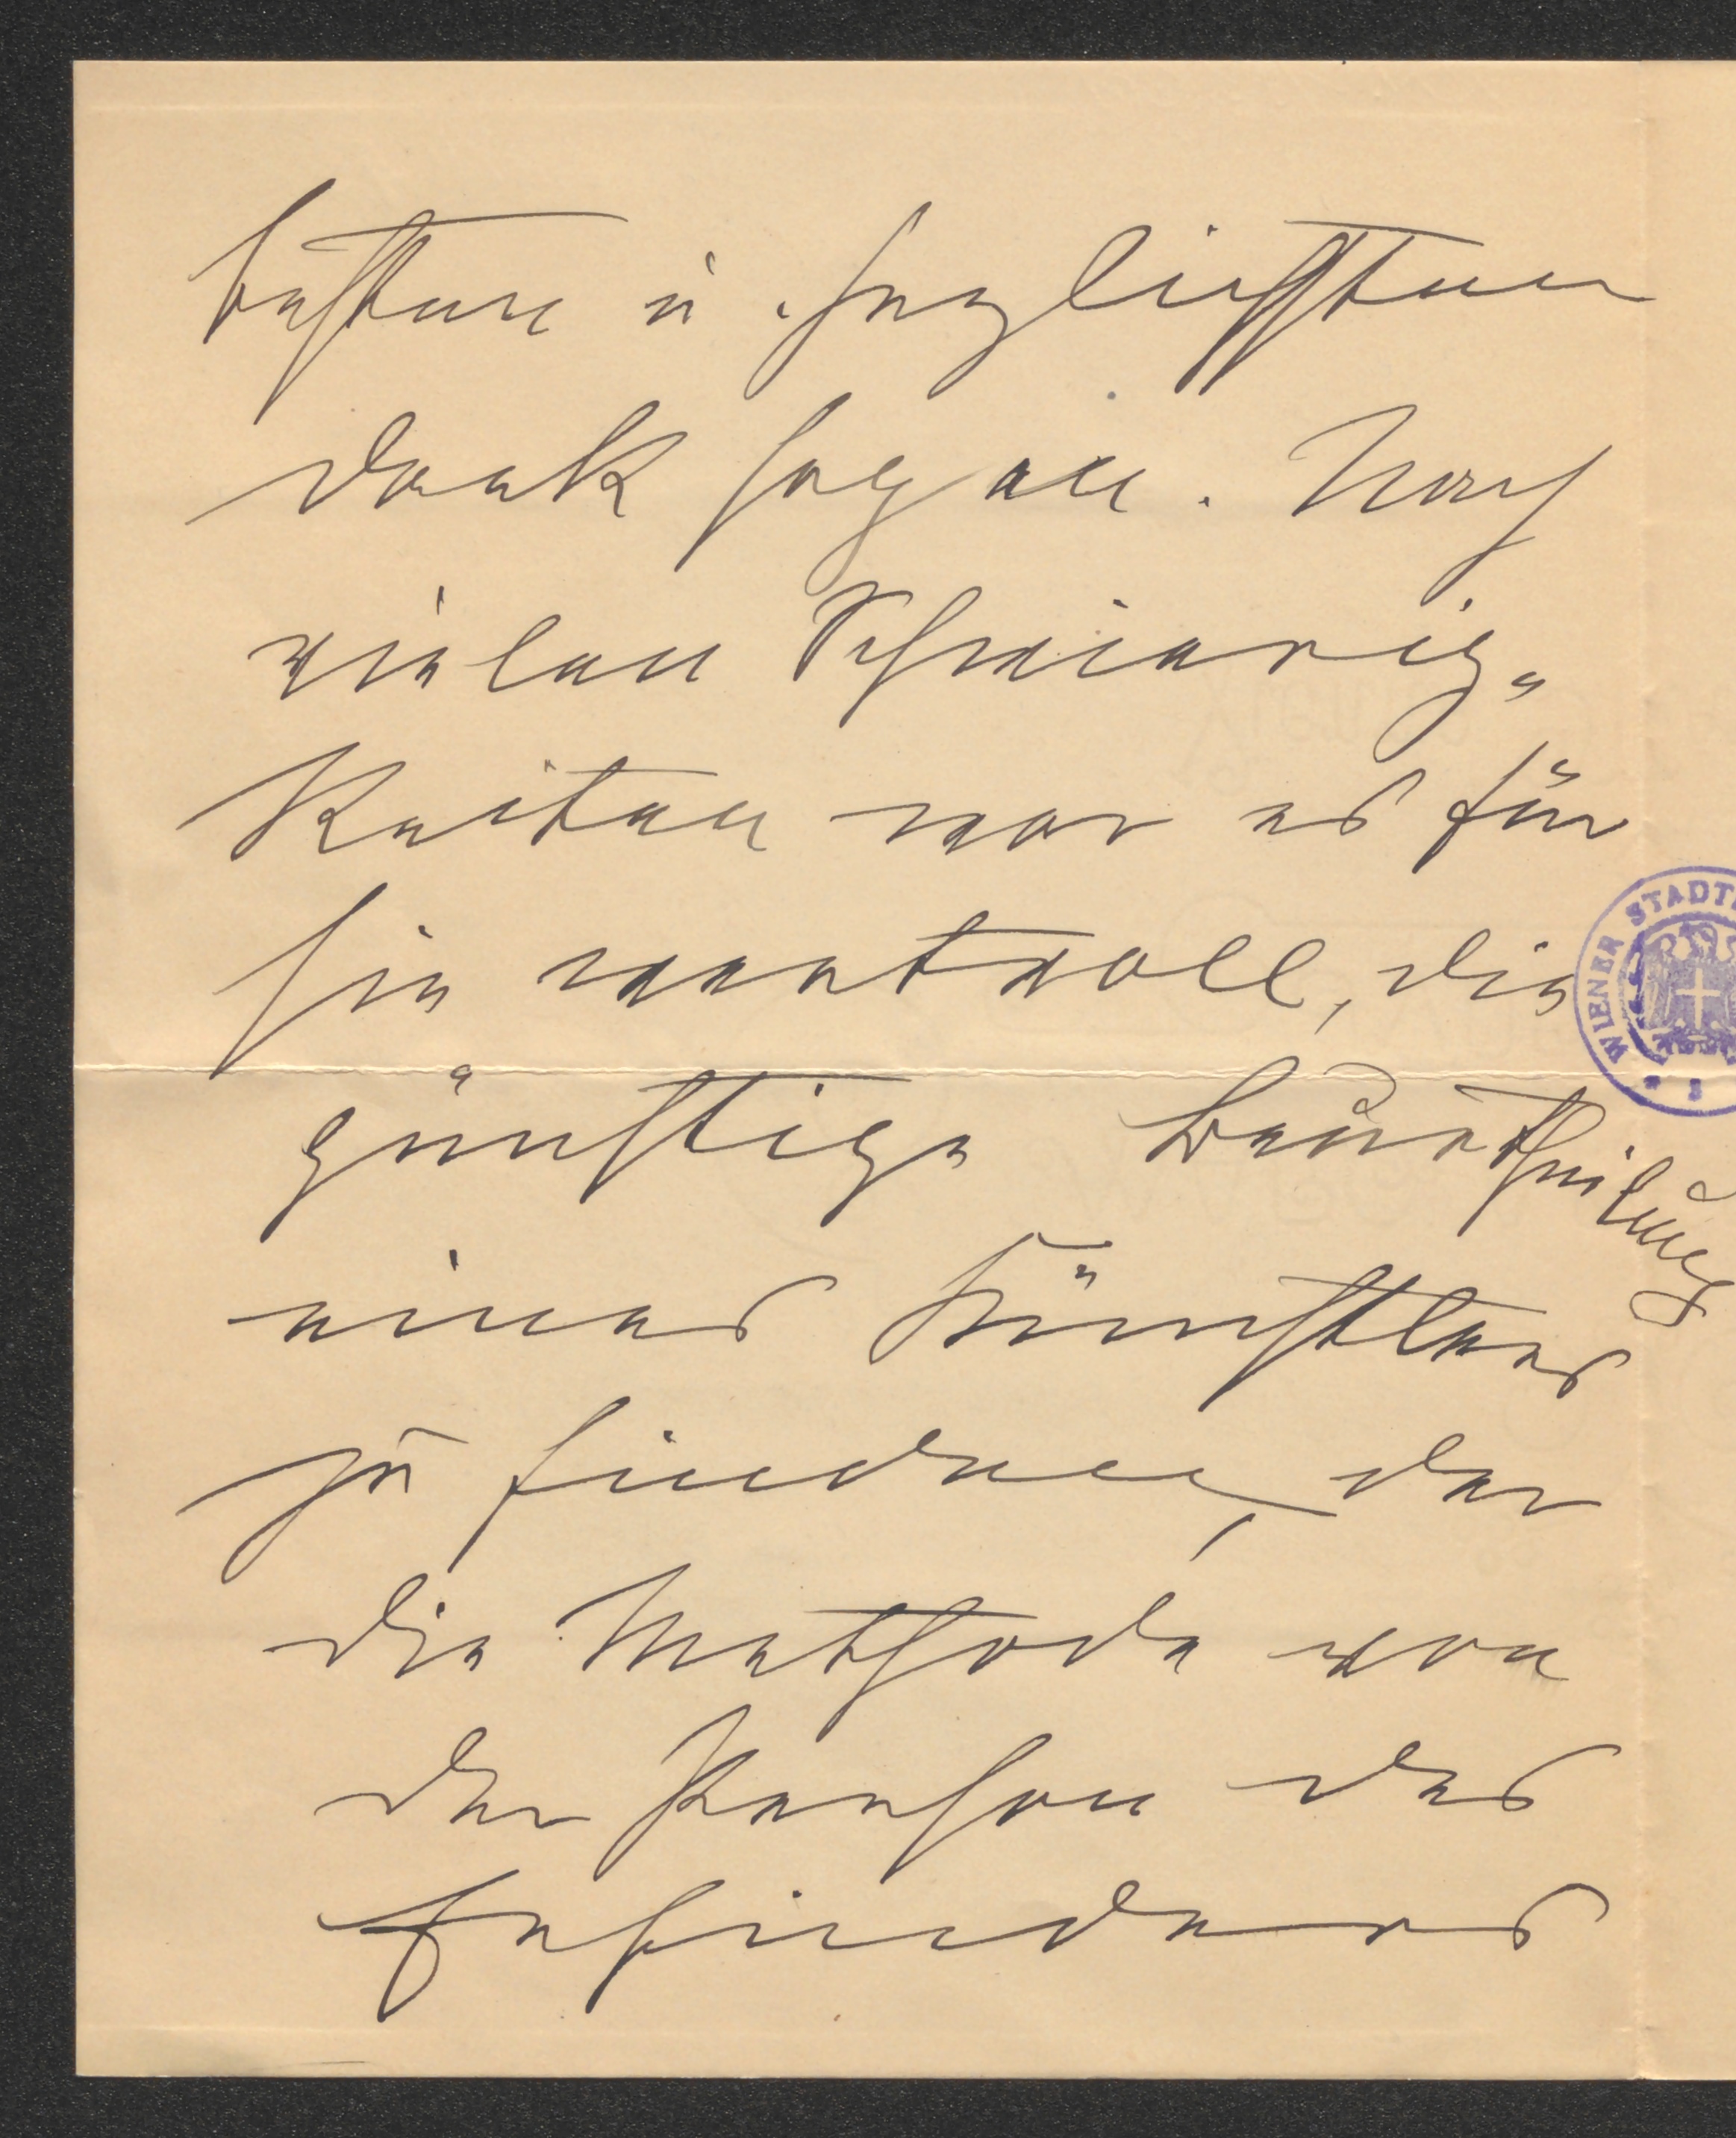 besten u. herzlichsten
Dank sagen. Nach
vielen Schwierig„
keiten war es für
sie wertvoll, die
günstige Beurtheilung
eines Künstlers
zu finden, der
die Methode von
der Person des
Erfinders
WIENER STADT